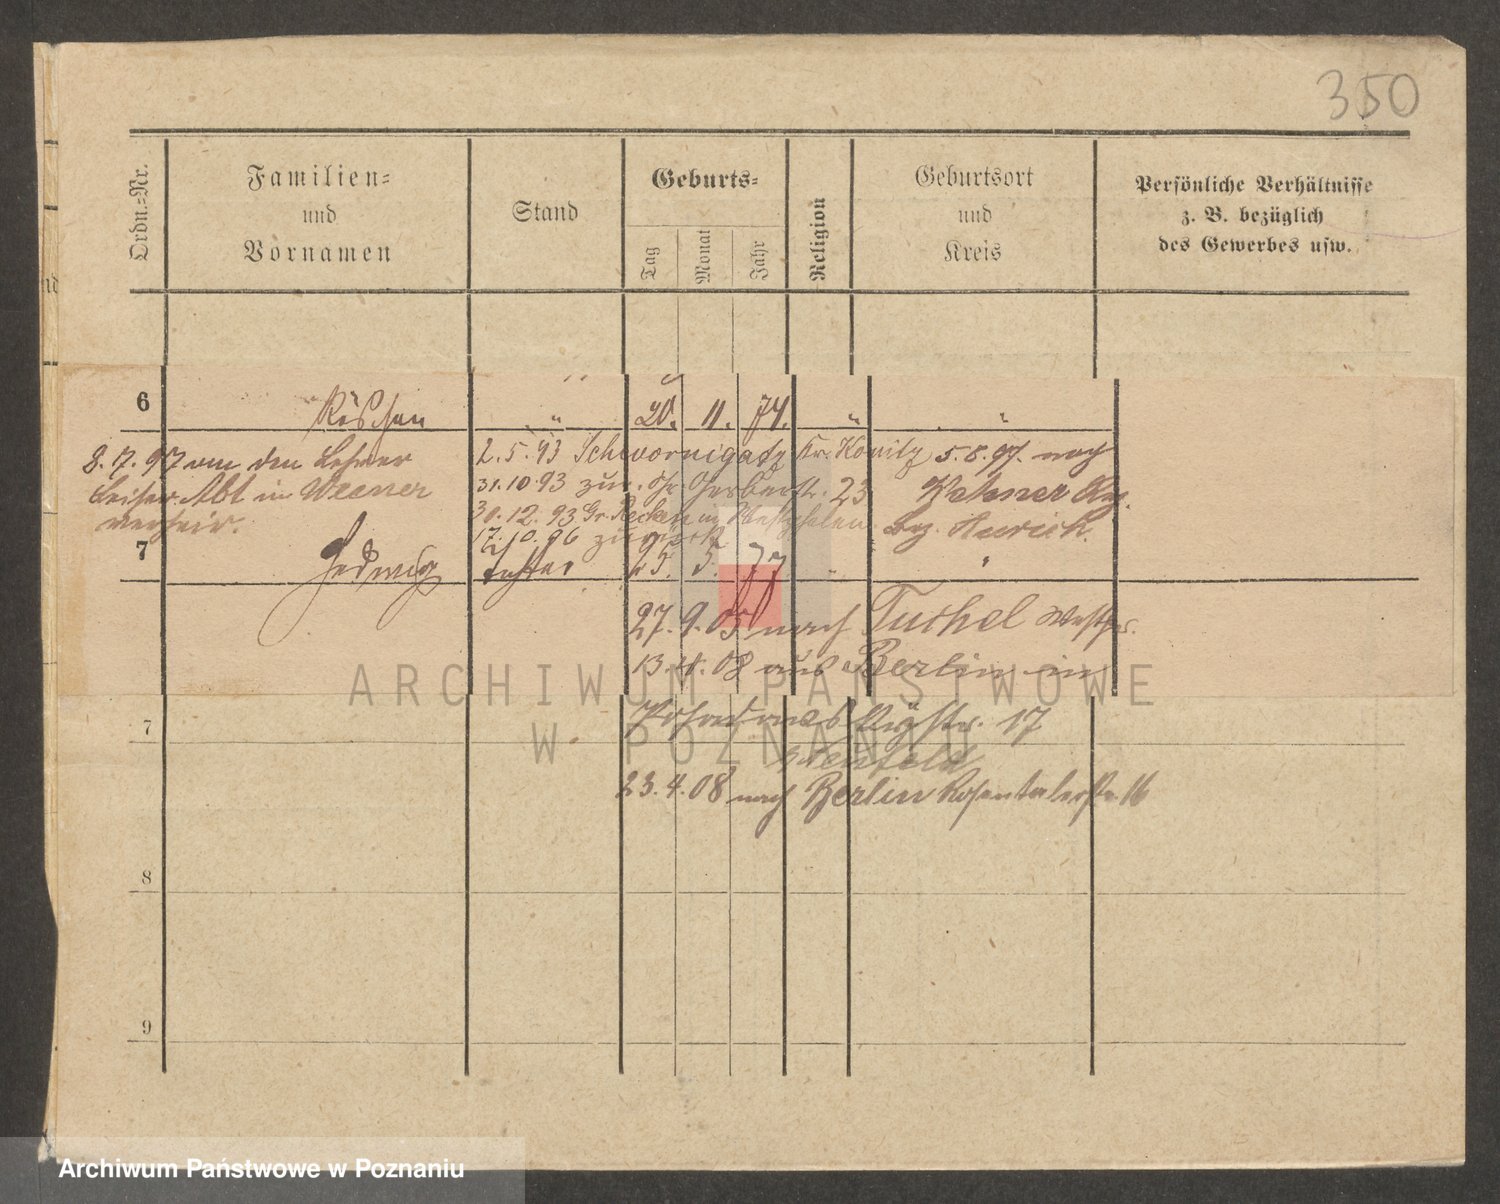 350
Ordn.=Nr.
Familien=
und
Vornamen
Stand
Geburts=
Tag
Monat
Jahr
Religion
Geburtsort
und
Kreis
Persönliche Verhältnisse
z. B. bezüglich
des Gewerbes usw.
nd
6 Röschen " 20. 11. 74. " "
8.7.97 an den Lehrer
Leiser Abt in Weener
verheir.
2.5.93 Schwornigatz Kr. Konitz 5.8.97. nach
31.10.93 zur. 23
30.12.93 Gr. Recken in Westfalen
17.10.96 zurück
Bez. Aurich.
7 Hedwig Tochter 25. 5. 77 "
27.9.05 nach Tuchel Westpr.
13.4.08 aus Berlin in
7
17
Neufeld
23.4.08 nach Berlin Rosentalerstr. 16
8
9
ARCHIWUM PAŃSTWOWE
W POZNANIU
Archiwum Państwowe w Poznaniu